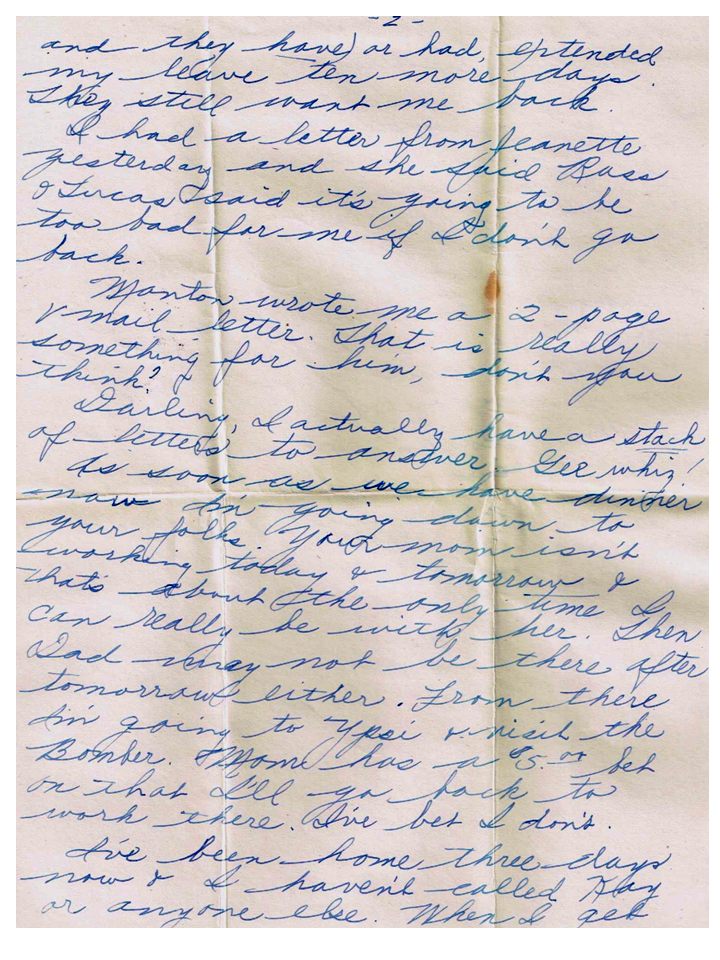 -2-
and they have) or had, extended
my leave ten more days.
They still want me back.
I had a letter from Jeanette
yesterday and she said Russ
& Lucas said it's going to be
too bad for me if I don't go
back.
Manton wrote me a 2-page
V mail letter. That is really
something for him, don't you
think?
Darling, I actually have a stack
of letters to answer. Gee whiz!
As soon as we have dinner
now I'm going down to
your folks. Your mom isn't
working today & tomorrow &
that's about the only time I
can really be with her. Then
Dad may not be there after
tomorrow either. From there
I'm going to Ypsi & visit the
Bomber. Mom has a $5.00 bet
on that I'll go back to
work there. I've bet I don't.
I've been home three days
now & I haven't called Kay
or anyone else. When I get